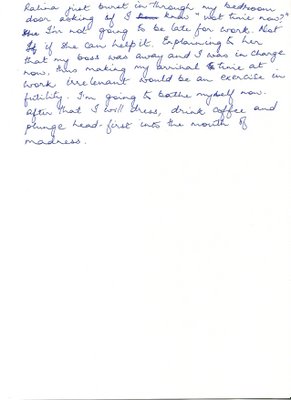 Halina just burst in through my bedroom
door asking if I know "wot time now?"
I'm not going to be late for work. Not
if she can help it. Explaining to her
that my boss was away and I was in charge
now, thus making my arrival time at
work irrelevant would be an exercise in
futility. I'm going to bathe myself now.
After that I will dress, drink coffee and
plunge head-first into the mouth of
madness.